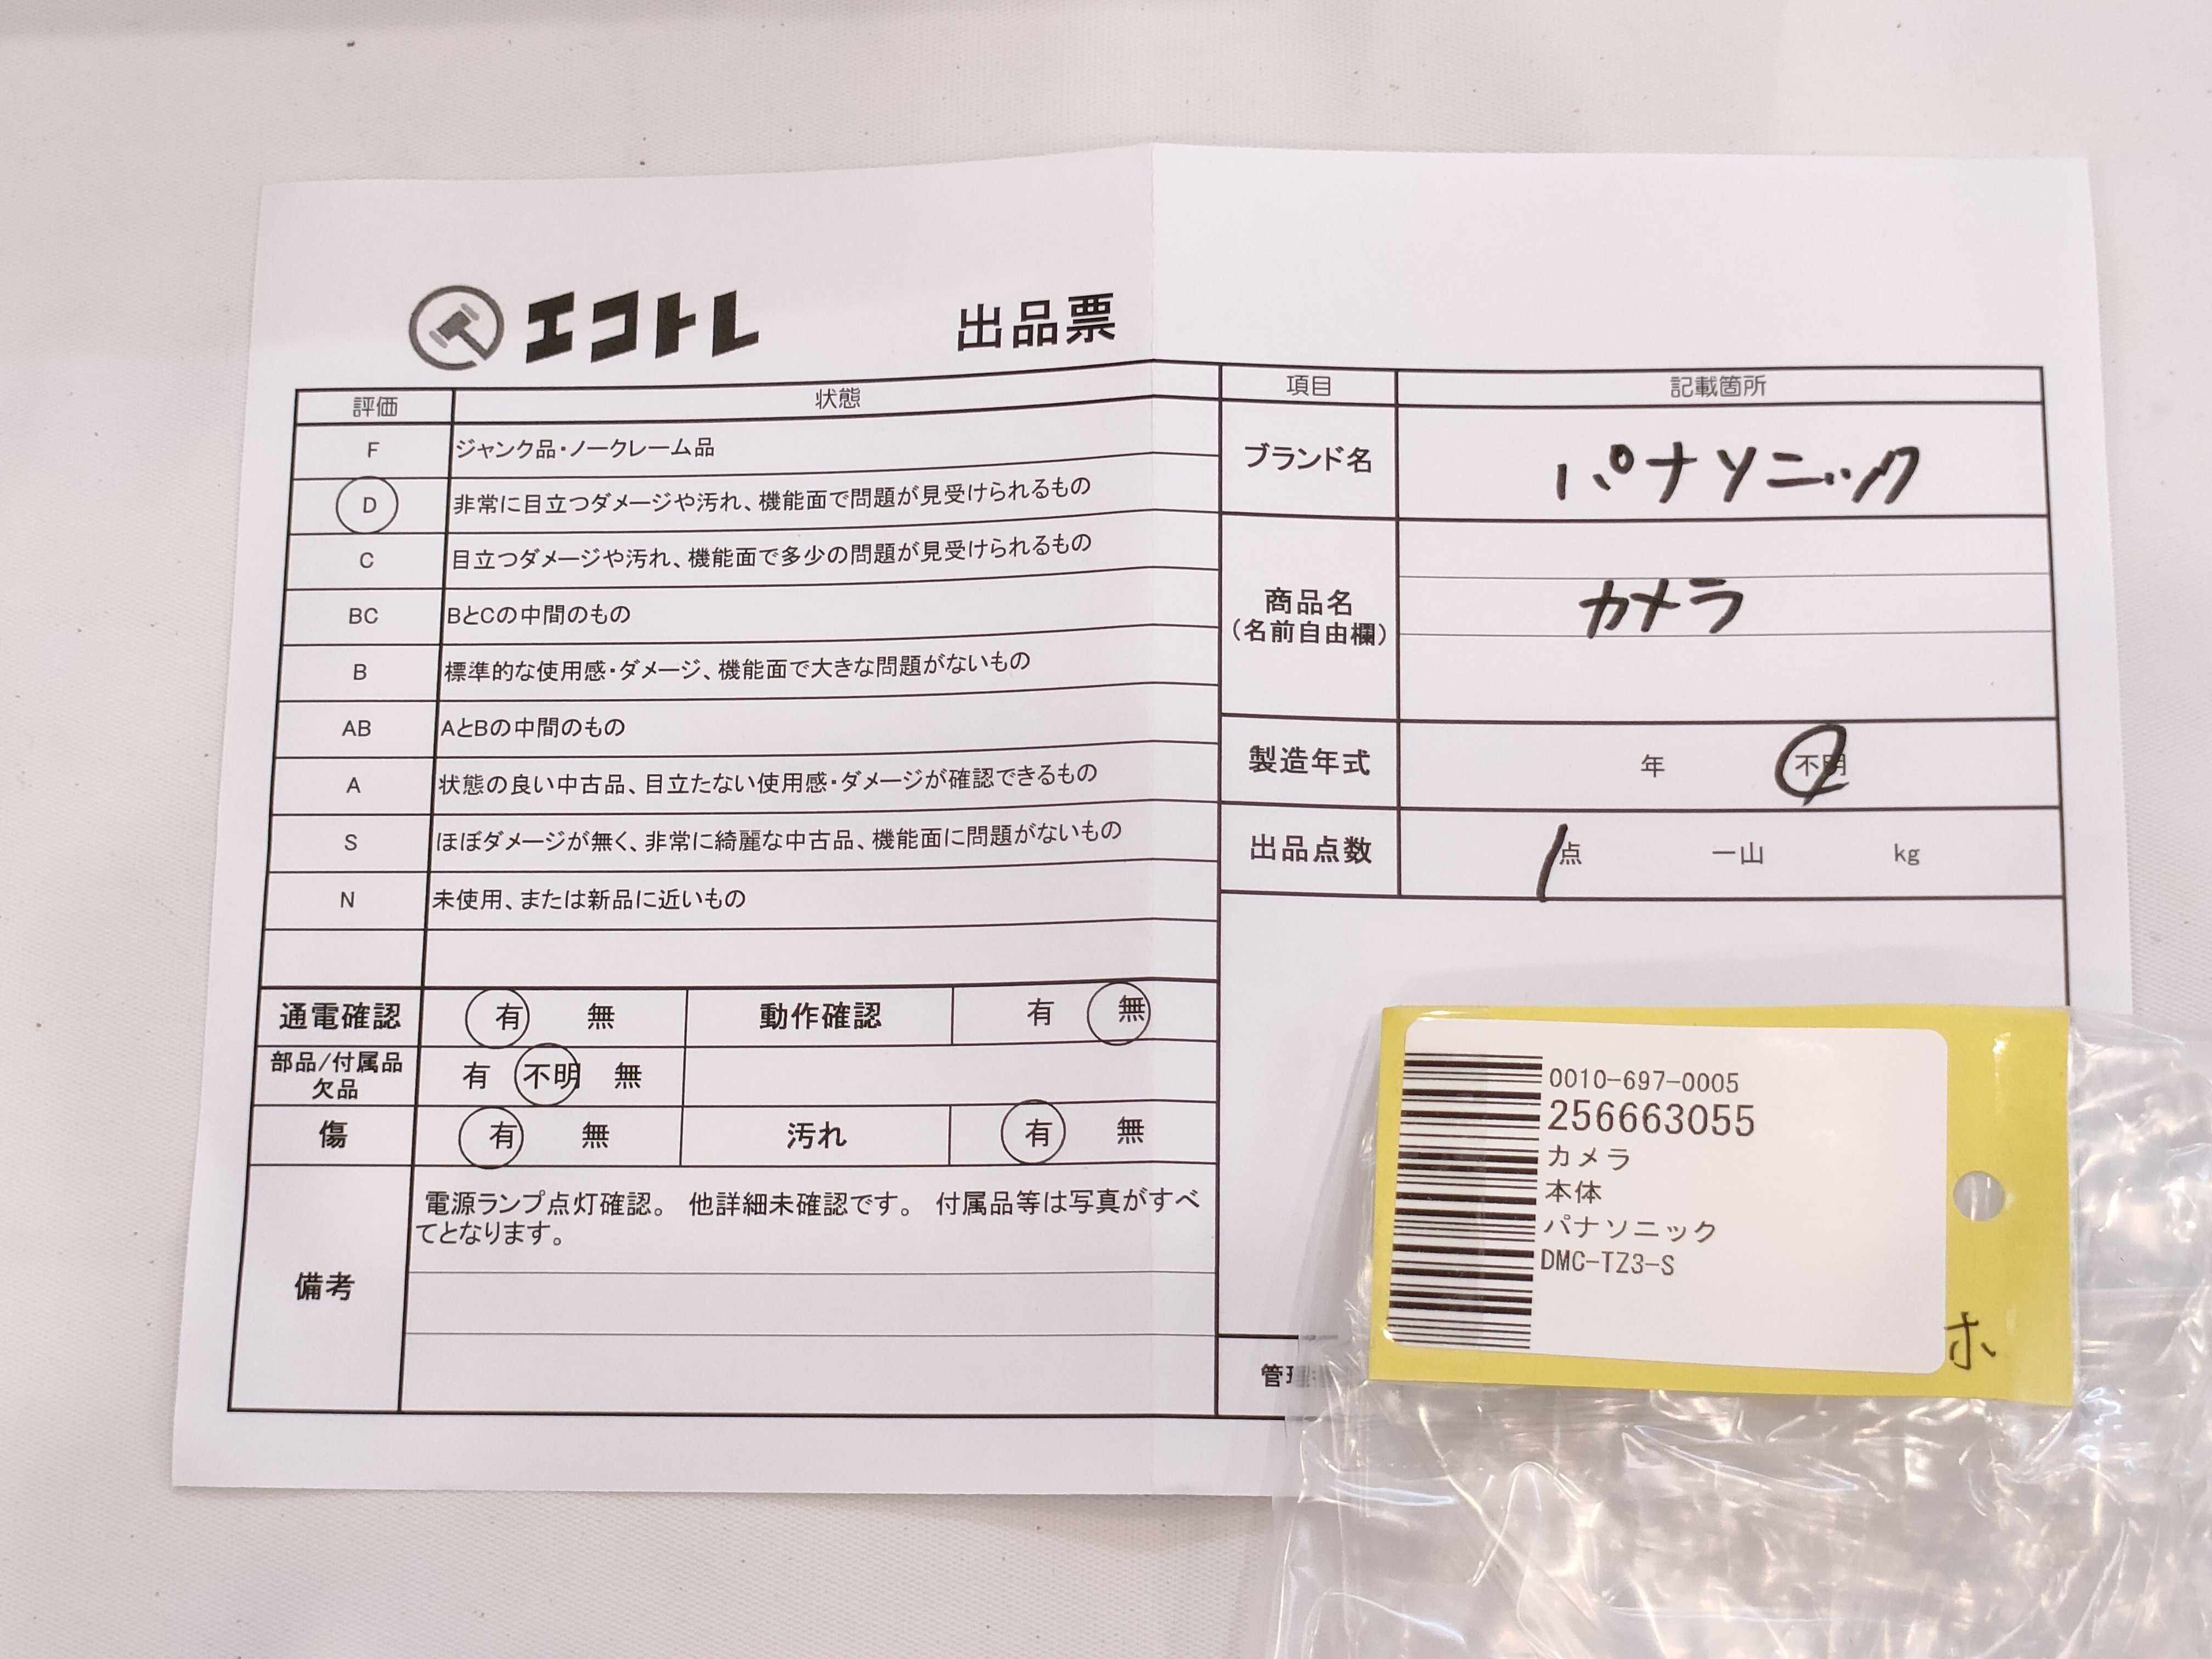 エコトレ 出品票
評価 状態
F ジャンク品・ノークレーム品
D 非常に目立つダメージや汚れ、機能面で問題が見受けられるもの
C 目立つダメージや汚れ、機能面で多少の問題が見受けられるもの
BC BとCの中間のもの
B 標準的な使用感・ダメージ、機能面で大きな問題がないもの
AB AとBの中間のもの
A 状態の良い中古品、目立たない使用感・ダメージが確認できるもの
S ほぼダメージが無く、非常に綺麗な中古品、機能面に問題がないもの
N 未使用、または新品に近いもの
通電確認 有 無 動作確認 有 無
部品/付属品
欠品 有 不明 無
傷 有 無 汚れ 有 無
備考
電源ランプ点灯確認。 他詳細未確認です。 付属品等は写真がすべ
てとなります。
項目 記載箇所
ブランド名 パナソニック
商品名
(名前自由欄)
カメラ
製造年式 年 不明
出品点数 1点 一山 kg
管
0010-697-0005
256663055
カメラ
本体
パナソニック
DMC-TZ3-S
ホ